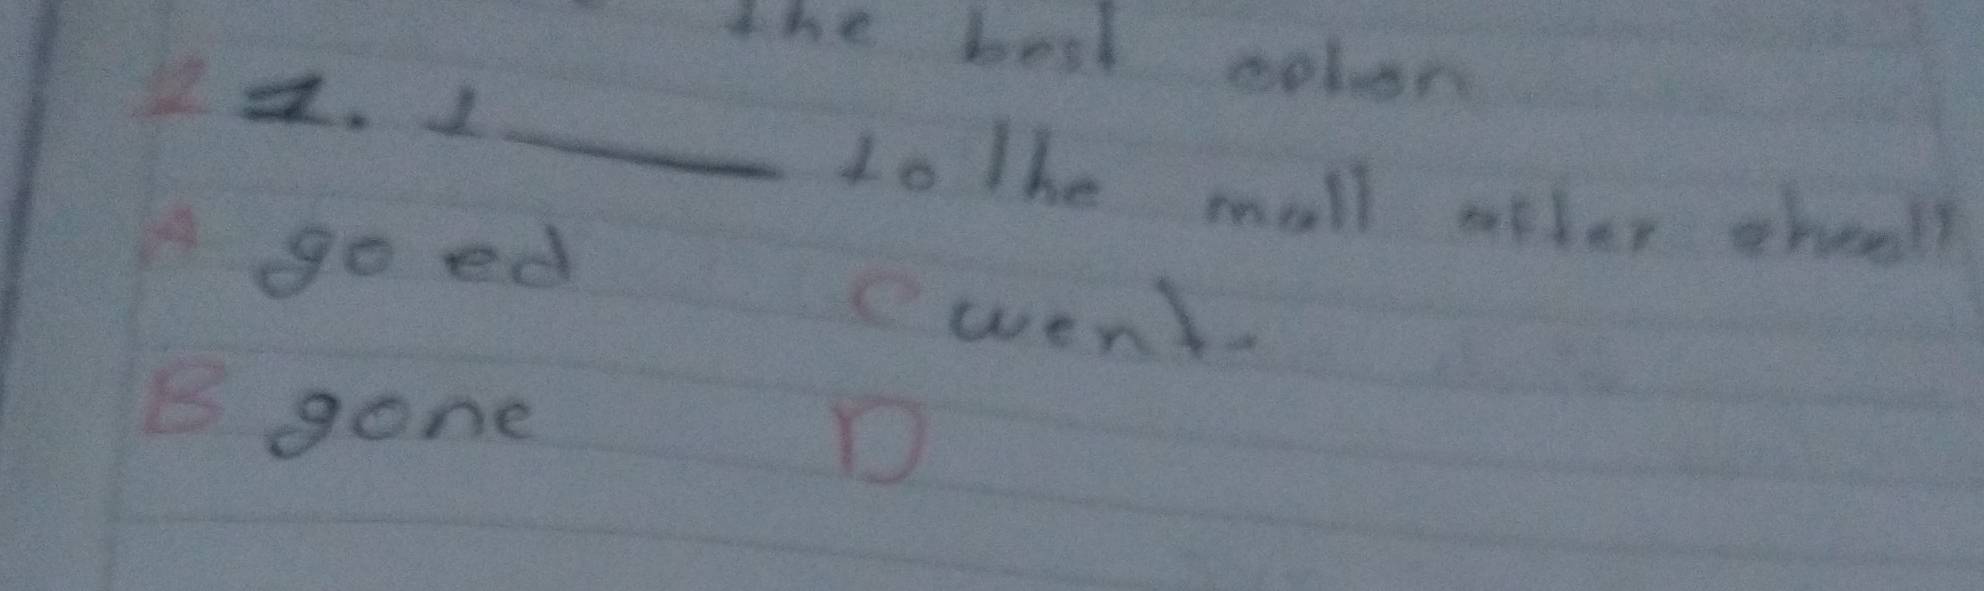 the best
2 1. I ____ to the mall after
A go ed C went.
B gone D